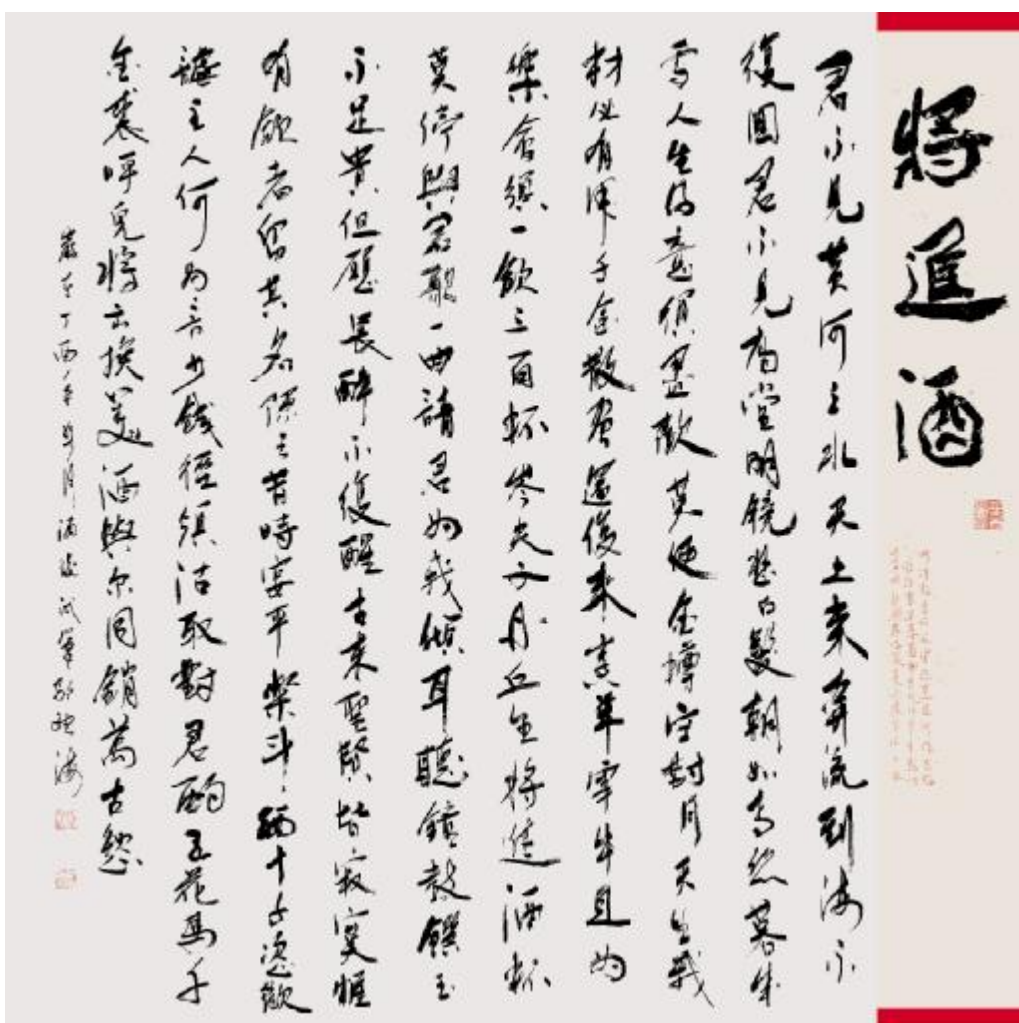 將進酒
君不見黃河之水天上來奔流到海不
復回君不見高堂明鏡悲白髮朝如青絲暮成
雪人生得意須盡歡莫使金樽空對月天生我
材必有用千金散盡還復來烹羊宰牛且為
樂會須一飲三百杯岑夫子丹丘生將進酒杯
莫停與君歌一曲請君為我傾耳聽鐘鼓饌玉
不足貴但願長醉不復醒古來聖賢皆寂寞惟
有飲者留其名陳王昔時宴平樂斗酒十千恣歡
謔主人何為言少錢徑須沽取對君酌五花馬千
金裘呼兒將出換美酒與爾同銷萬古愁
歲在丁酉年